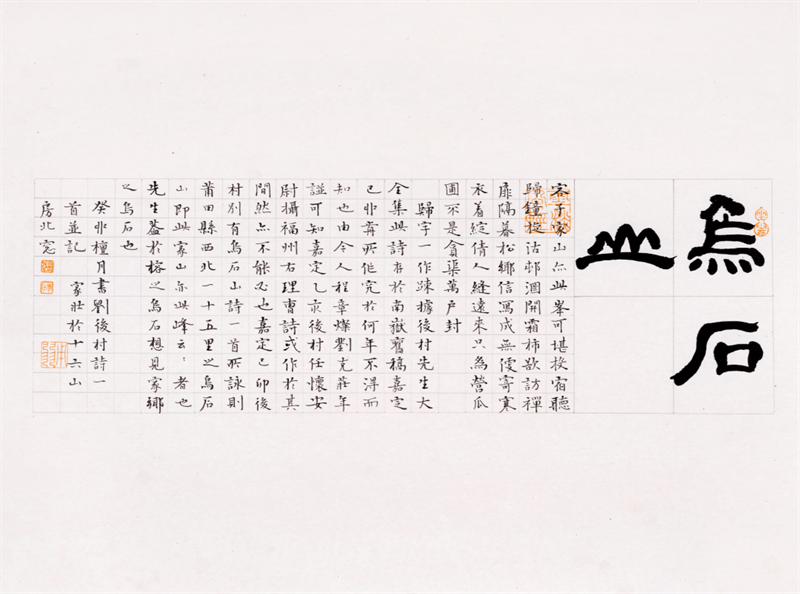 烏石
山
客子家山亦此峯可堪投宿聽
歸鐘沽邨酒開霜柿欲訪禪
扉隔暮松鄉信寫成無便寄寒
衣着綻倩人縫遠來只為營瓜
圃不是貪渠萬戶封
歸字一作踈據後村先生大
全集此詩存於南嶽舊稿嘉定
己卯前所作究於何年不得而
知也由今人程章燦劉克莊年
譜可知嘉定乙亥後村任懷安
尉攝福州右理曹詩或作於其
間然亦不能必也嘉定己卯後
村別有烏石山詩一首所詠則
莆田縣西北一十五里之烏石
山即此家山亦此峰云：者也
先生蓋於榕之烏石想見家鄉
之烏石也
癸卯檀月書劉後村詩一
首並記 家壯於十六山
房北窓